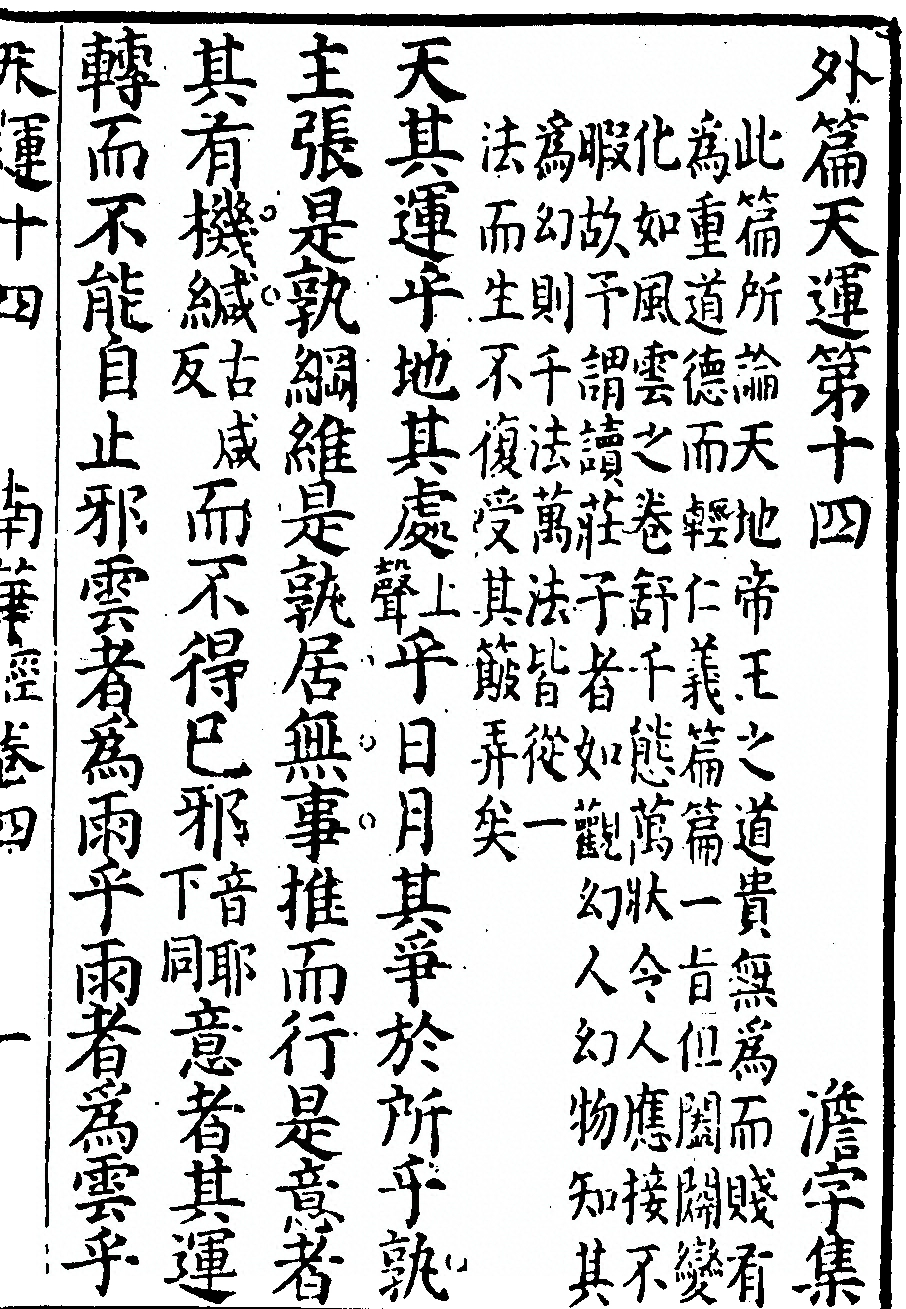 外篇天運第十四　澹字集
此篇所論天地帝王之道貴無為而賤有
為重道德而輕仁義篇篇一旨但闔闢變
化如風雲之卷舒千態萬狀令人應接不
暇故予謂讀莊子者如觀幻人幻物知其
為幻則千法萬法皆從一
法而生不復受其簸弄矣
天其運乎地其處上聲乎日月其爭於所乎孰
主張是孰綱維是孰居無事推而行是意者
其有機緘古咸反而不得已邪音耶下同意者其運
轉而不能自止邪雲者為雨乎雨者為雲乎
天運十四　南華經卷四　一